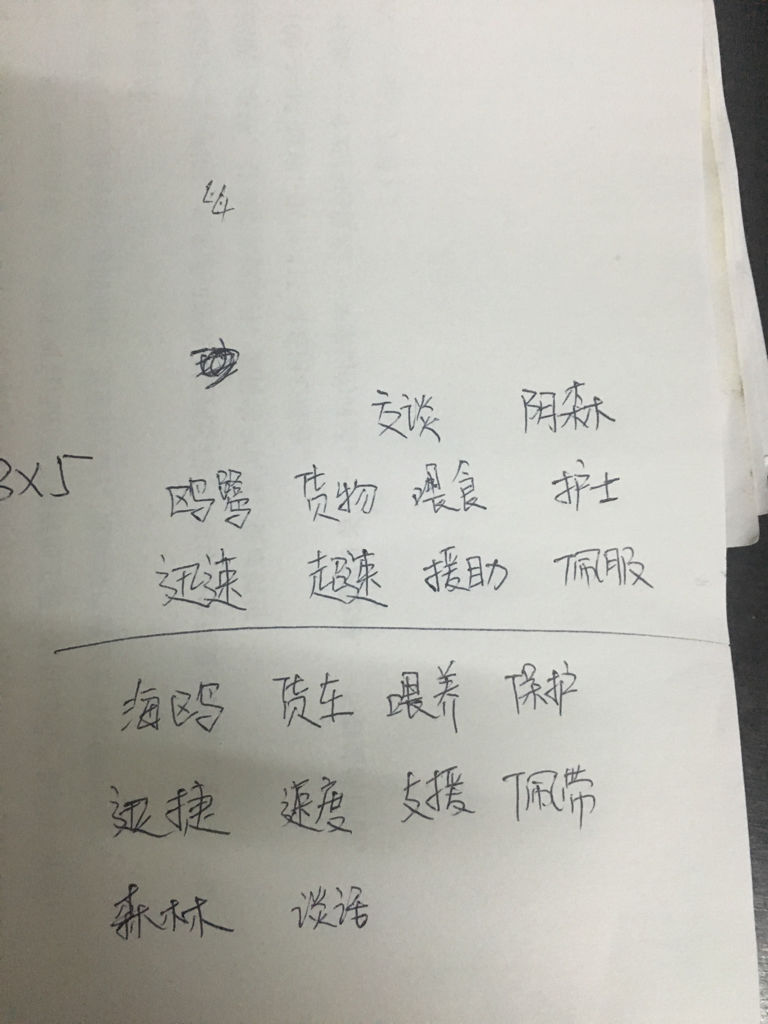 交谈 阴森
3×5
鸥鹭 货物 喂食 护士
迅速 超速 援助 佩服
海鸥 货车 喂养 保护
迅捷 速度 支援 佩带
森林 谈话